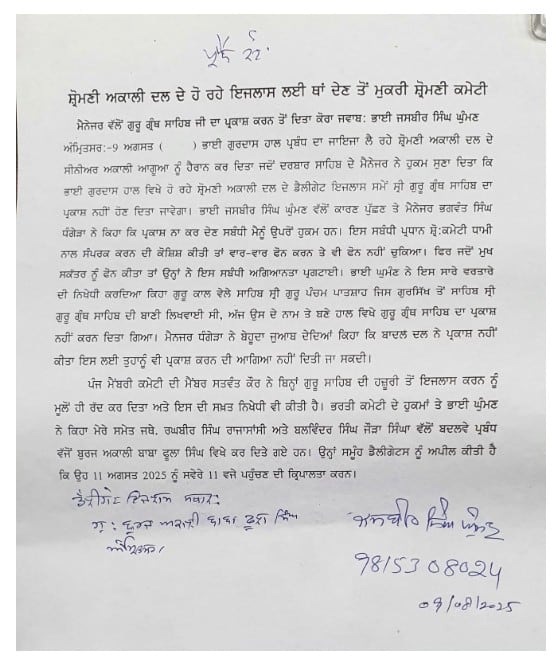 ਪ੍ਰੈਸ ਨੋਟ
ਸ਼੍ਰੋਮਣੀ ਅਕਾਲੀ ਦਲ ਦੇ ਹੋ ਰਹੇ ਇਜਲਾਸ ਲਈ ਥਾਂ ਦੇਣ ਤੋਂ ਮੁਕਰੀ ਸ਼੍ਰੋਮਣੀ ਕਮੇਟੀ
ਮੈਨੇਜਰ ਵੱਲੋਂ ਗੁਰੂ ਗ੍ਰੰਥ ਸਾਹਿਬ ਜੀ ਦਾ ਪ੍ਰਕਾਸ਼ ਕਰਨ ਤੋਂ ਦਿਤਾ ਕੋਰਾ ਜਵਾਬ: ਭਾਈ ਜਸਬੀਰ ਸਿੰਘ ਘੁੰਮਣ
ਅੰਮ੍ਰਿਤਸਰ:-9 ਅਗਸਤ (      ) ਭਾਈ ਗੁਰਦਾਸ ਹਾਲ ਪ੍ਰਬੰਧ ਦਾ ਜਾਇਜਾ ਲੈ ਰਹੇ ਸ਼੍ਰੋਮਣੀ ਅਕਾਲੀ ਦਲ ਦੇ
ਸੀਨੀਅਰ ਅਕਾਲੀ ਆਗੂਆ ਨੂੰ ਹੈਰਾਨ ਕਰ ਦਿਤਾ ਜਦੋਂ ਦਰਬਾਰ ਸਾਹਿਬ ਦੇ ਮੈਨੇਜਰ ਨੇ ਹੁਕਮ ਸੁਣਾ ਦਿਤਾ ਕਿ
ਭਾਈ ਗੁਰਦਾਸ ਹਾਲ ਵਿਖੇ ਹੋ ਰਹੇ ਸ਼੍ਰੋਮਣੀ ਅਕਾਲੀ ਦਲ ਦੇ ਡੈਲੀਗੇਟ ਇਜਲਾਸ ਸਮੇਂ ਸ੍ਰੀ ਗੁਰੂ ਗ੍ਰੰਥ ਸਾਹਿਬ ਦਾ
ਪ੍ਰਕਾਸ਼ ਨਹੀਂ ਹੋਣ ਦਿਤਾ ਜਾਵੇਗਾ। ਭਾਈ ਜਸਬੀਰ ਸਿੰਘ ਘੁੰਮਣ ਵੱਲੋਂ ਕਾਰਣ ਪੁੱਛਣ ਤੇ ਮੈਨੇਜਰ ਭਗਵੰਤ ਸਿੰਘ
ਧੰਗੇੜਾ ਨੇ ਕਿਹਾ ਕਿ ਪ੍ਰਕਾਸ਼ ਨਾ ਕਰ ਦੇਣ ਸਬੰਧੀ ਮੈਨੂੰ ਉਪਰੋਂ ਹੁਕਮ ਹਨ। ਇਸ ਸਬੰਧੀ ਪ੍ਰਧਾਨ ਸ਼੍ਰੋ:ਕਮੇਟੀ ਧਾਮੀ
ਨਾਲ ਸੰਪਰਕ ਕਰਨ ਦੀ ਕੋਸ਼ਿਸ਼ ਕੀਤੀ ਤਾਂ ਵਾਰ-ਵਾਰ ਫੋਨ ਕਰਨ ਤੇ ਵੀ ਫੋਨ ਨਹੀਂ ਚੁਕਿਆ। ਫਿਰ ਜਦੋਂ ਮੁਖ
ਸਕੱਤਰ ਨੂੰ ਫੋਨ ਕੀਤਾ ਤਾਂ ਉਨ੍ਹਾਂ ਨੇ ਇਸ ਸਬੰਧੀ ਅਗਿਆਨਤਾ ਪ੍ਰਗਟਾਈ। ਭਾਈ ਘੁਮੰਣ ਨੇ ਇਸ ਸਾਰੇ ਵਰਤਾਰੇ
ਦੀ ਨਿਖੇਧੀ ਕਰਦਿਆ ਕਿਹਾ ਗੁਰੂ ਕਾਲ ਵੇਲੇ ਸਾਹਿਬ ਸ੍ਰੀ ਗੁਰੂ ਪੰਚਮ ਪਾਤਸ਼ਾਹ ਜਿਸ ਗੁਰਸਿੱਖ ਤੋਂ ਸਾਹਿਬ ਸ੍ਰੀ
ਗੁਰੂ ਗ੍ਰੰਥ ਸਾਹਿਬ ਦੀ ਬਾਣੀ ਲਿਖਵਾਈ ਸੀ, ਅੱਜ ਉਸ ਦੇ ਨਾਮ ਤੇ ਬਣੇ ਹਾਲ ਵਿਖੇ ਗੁਰੂ ਗ੍ਰੰਥ ਸਾਹਿਬ ਦਾ ਪ੍ਰਕਾਸ਼
ਨਹੀਂ ਕਰਨ ਦਿਤਾ ਗਿਆ। ਮੈਨਜਰ ਧੰਗੇੜਾ ਨੇ ਬੇਹੂਦਾ ਜੁਆਬ ਦੇਦਿਆਂ ਕਿਹਾ ਕਿ ਬਾਦਲ ਦਲ ਨੇ ਪ੍ਰਕਾਸ਼ ਨਹੀਂ
ਕੀਤਾ ਇਸ ਲਈ ਤੁਹਾਨੂੰ ਵੀ ਪ੍ਰਕਾਸ਼ ਕਰਨ ਦੀ ਆਗਿਆ ਨਹੀਂ ਦਿਤੀ ਜਾ ਸਕਦੀ।
ਪੰਜ ਮੈਂਬਰੀ ਕਮੇਟੀ ਦੀ ਮੈਂਬਰ ਸਤਵੰਤ ਕੌਰ ਨੇ ਬਿਨ੍ਹਾਂ ਗੁਰੂ ਸਾਹਿਬ ਦੀ ਹਜ਼ੂਰੀ ਤੋਂ ਇਜਲਾਸ ਕਰਨ ਨੂੰ
ਮੂਲੋਂ ਹੀ ਰੱਦ ਕਰ ਦਿਤਾ ਅਤੇ ਇਸ ਦੀ ਸਖ਼ਤ ਨਿਖੇਧੀ ਵੀ ਕੀਤੀ ਹੈ। ਭਰਤੀ ਕਮੇਟੀ ਦੇ ਹੁਕਮਾਂ ਤੇ ਭਾਈ ਘੁੰਮਣ
ਨੇ ਕਿਹਾ ਮੇਰੇ ਸਮੇਤ ਜਥੇ. ਰਘਬੀਰ ਸਿੰਘ ਰਾਜਾਸਾਂਸੀ ਅਤੇ ਬਲਵਿੰਦਰ ਸਿੰਘ ਜੌੜਾ ਸਿੰਘਾ ਵੱਲੋਂ ਬਦਲਵੇ ਪ੍ਰਬੰਧ
ਵੱਜੋਂ ਬੁਰਜ ਅਕਾਲੀ ਬਾਬਾ ਫੂਲਾ ਸਿੰਘ ਵਿਖੇ ਕਰ ਦਿਤੇ ਗਏ ਹਨ। ਉਨ੍ਹਾਂ ਸਮੂੰਹ ਡੈਲੀਗੇਟਸ ਨੂੰ ਅਪੀਲ ਕੀਤੀ ਹੈ
ਕਿ ਉਹ 11 ਅਗਸਤ 2025 ਨੂੰ ਸਵੇਰੇ 11 ਵਜੇ ਪਹੁੰਚਣ ਦੀ ਕ੍ਰਿਪਾਲਤਾ ਕਰਨ।
ਡੈਲੀਗੇਟ ਇਜਲਾਸ ਸਥਾਨ:
ਗੁ: ਬੁਰਜ ਅਕਾਲੀ ਬਾਬਾ ਫੂਲਾ ਸਿੰਘ
ਅੰਮ੍ਰਿਤਸਰ।
ਜਸਬੀਰ ਸਿੰਘ ਘੁੰਮਣ
98153 08024
09/08/2025